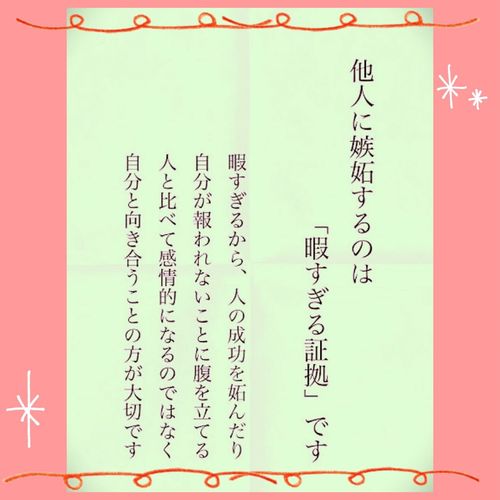 他人に嫉妬するのは
「暇すぎる証拠」です
暇すぎるから、人の成功を妬んだり
自分が報われないことに腹を立てる
人と比べて感情的になるのではなく
自分と向き合うことの方が大切です